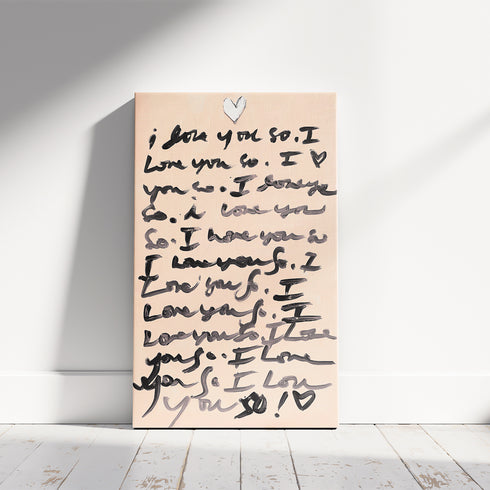 i love you so. I
Love you so. I ♡
you so. I love yo
So. i love you
So. I love you so
I love you so. I
Love you so. I
Love you so. I
Love you so. I Love
you so. I Love
you so. I Love
You SO! ♡